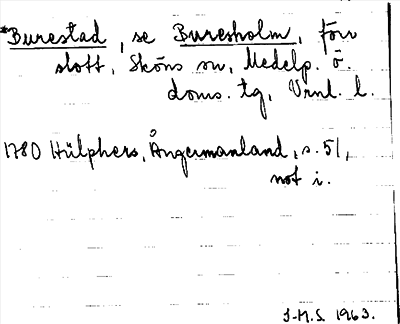 *Burestad, se Buresholm, förr
slott, Sköns sn, Medelp. ö.
doms. tg, Vrnl. l.
1780 Hülphers, Ångermanland, s. 51,
not i.
J-M.S. 1963.